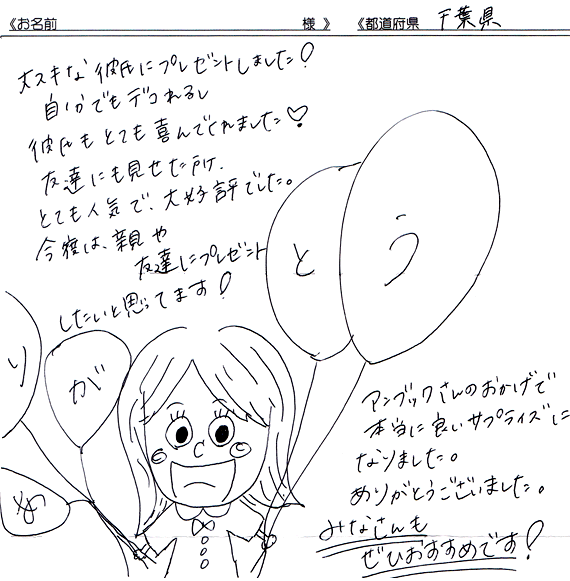 《お名前 様 》 《都道府県 千葉県
大スキな彼氏にプレゼントしました!
自分でもデコれるし
彼氏もとても喜んでくれました♡
友達にも見せた所、
とても人気で、大好評でした。
今度は、親や
友達にプレゼント
したいと思ってます!
あ
り
が
と
う
アンブックさんのおかげで
本当に良いサプライズに
なりました。
ありがとうございました。
みなさんも
ぜひおすすめです!